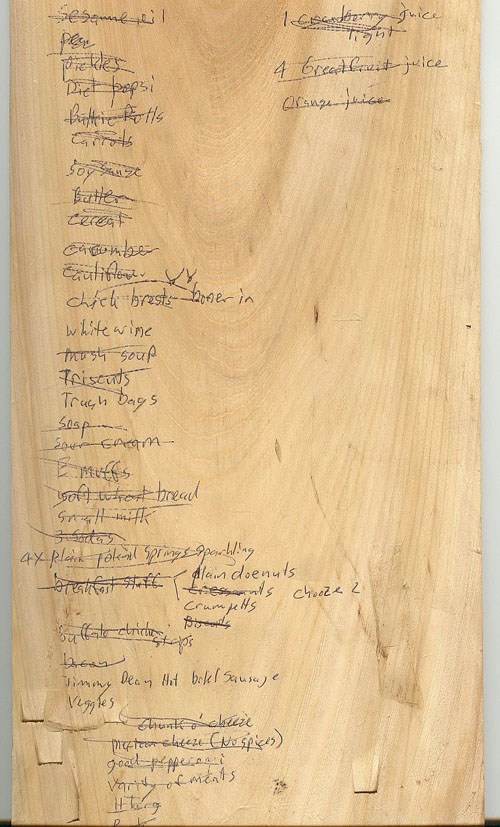 Sesame oil
Pickles
Diet pepsi
Carrots
Soy Sauce
Butter
cereal
cucumber
cauliflower
chick brests boner in
white wine
mush soup
Triscuts
Trash bags
Soap
sour cream
E muffs
soft wheat bread
small milk
3 Sodas
4x Plain poland springs sparkling
breakfast stuff
plain doenuts
chooze 2
crumpetts
Biscuits
buffalo chicken
strips
Jimmy Dean Hot brkf Sausage
Veggies
chunk o' cheeze
mexican cheeze (No spices)
good pepperoni
varity of meats
1 cranberry juice
light
4 Greatfruit juice
Orange juice